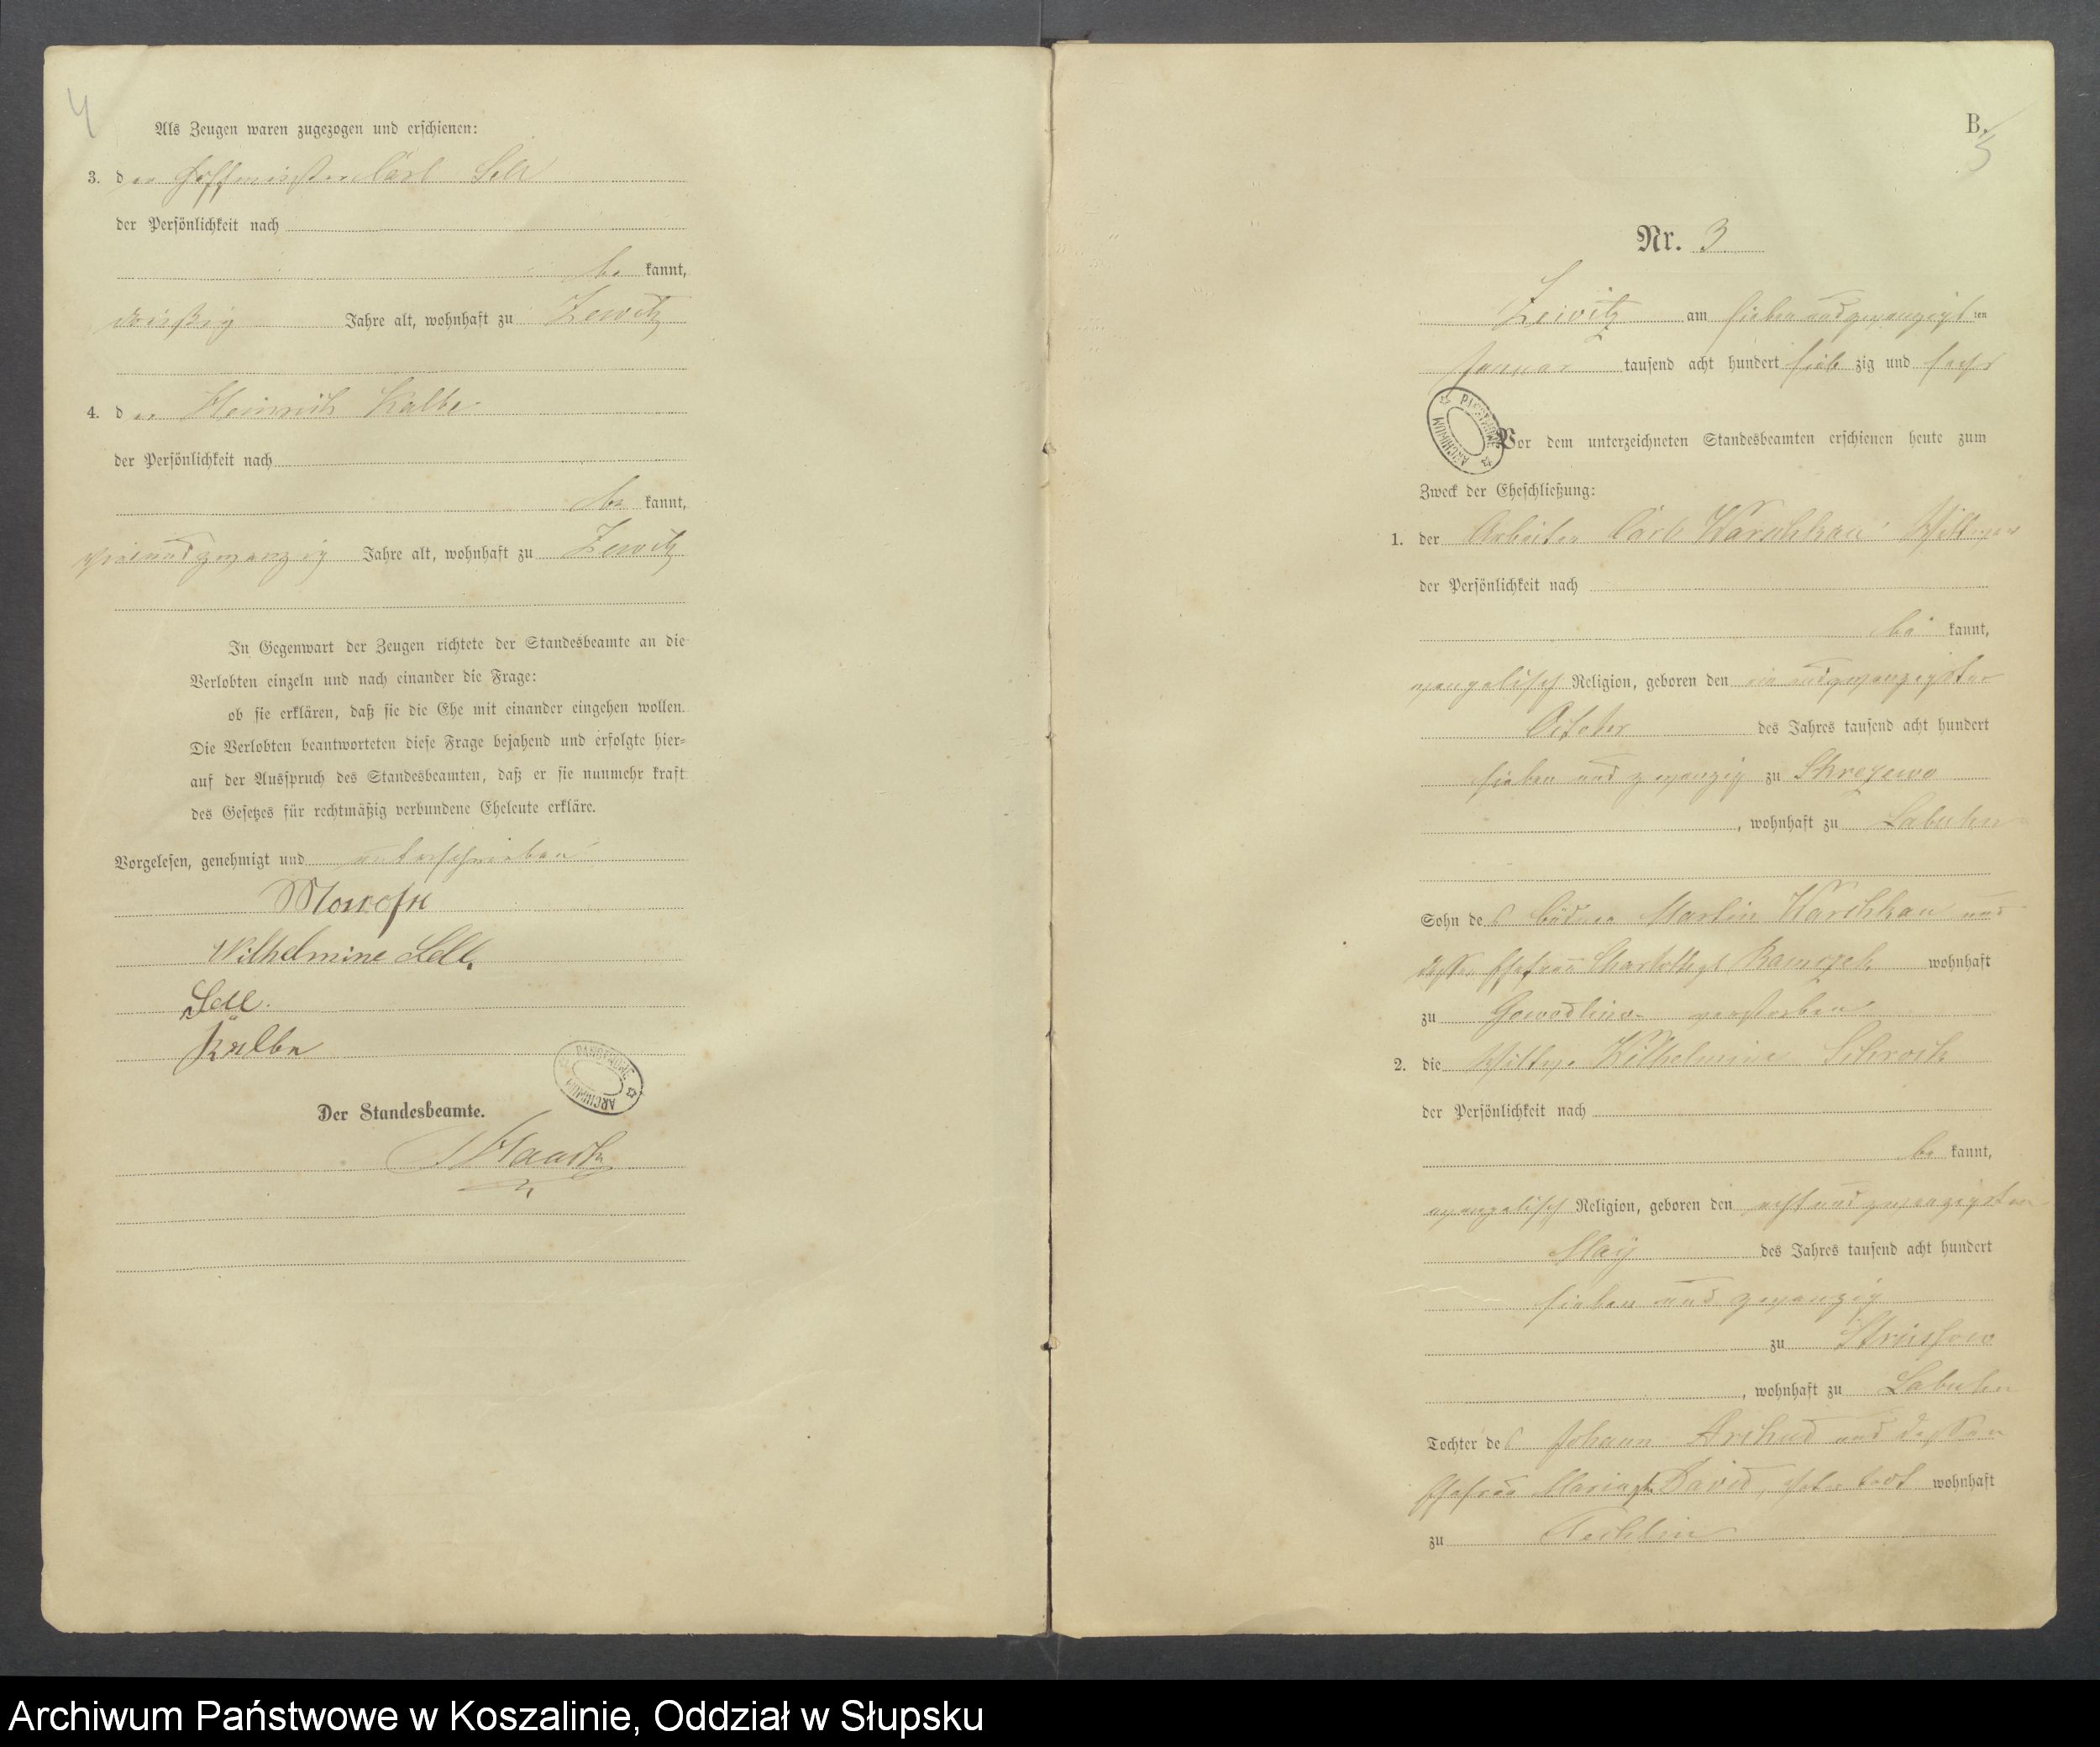 4
Als Zeugen waren zugezogen und erschienen:
3. der Hoffmeister Carl Sell
der Persönlichkeit nach
be kannt,
dreißig Jahre alt, wohnhaft zu Zewitz
4. der Heinrich Kalbe
der Persönlichkeit nach
be kannt,
Jahre alt, wohnhaft zu Zewitz
In Gegenwart der Zeugen richtete der Standesbeamte an die
Verlobten einzeln und nach einander die Frage:
ob sie erklären, daß sie die Ehe mit einander eingehen wollen.
Die Verlobten beantworteten diese Frage bejahend und erfolgte hier-
auf der Ausspruch des Standesbeamten, daß er sie nunmehr kraft
des Gesetzes für rechtmäßig verbundene Eheleute erkläre.
Vorgelesen, genehmigt und unterschrieben
Wilhelmine Sell.
Sell.
Kalbe
ARCHIWUM PAŃSTWOWE
Der Standesbeamte.
B.
5
Nr. 3
Zewitz am sieben und zwanzigsten
Januar tausend acht hundert sieb zig und sechs
ARCHIWUM PAŃSTWOWE
Vor dem unterzeichneten Standesbeamten erschienen heute zum
Zweck der Eheschließung:
1. der Arbeiter Carl Warschkau Wittwer
der Persönlichkeit nach
be kannt,
evangelisch Religion, geboren den ein und zwanzigsten
October des Jahres tausend acht hundert
sieben und zwanzig zu Skrzewo
, wohnhaft zu Labuhn
Sohn des Büdner Martin Warschkau und
dessen Ehefrau wohnhaft
zu Gowidlino verstorben
2. die Wittwe Wilhelmine Schroch
der Persönlichkeit nach
be kannt,
evangelisch Religion, geboren den acht und zwanzigsten
May des Jahres tausend acht hundert
sieben und zwanzig
zu Strussow
, wohnhaft zu Labuhn
Tochter des Johann Arthud und dessen
Ehefrau Maria geb. David, wohnhaft
zu Techlin
Archiwum Państwowe w Koszalinie, Oddział w Słupsku